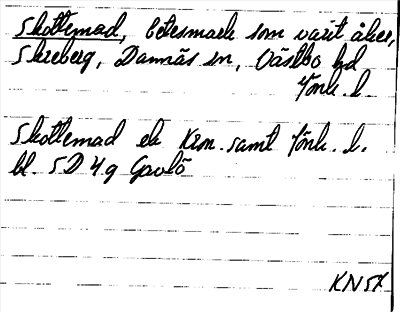 Skottemad, betesmark som varit åker,
Skeberg, Dannäs sn, Västbo hd
Jönk. l.
Skottemad ek Kron. samt Jönk. l.
bl. 5D 4g Gavlö
KN57